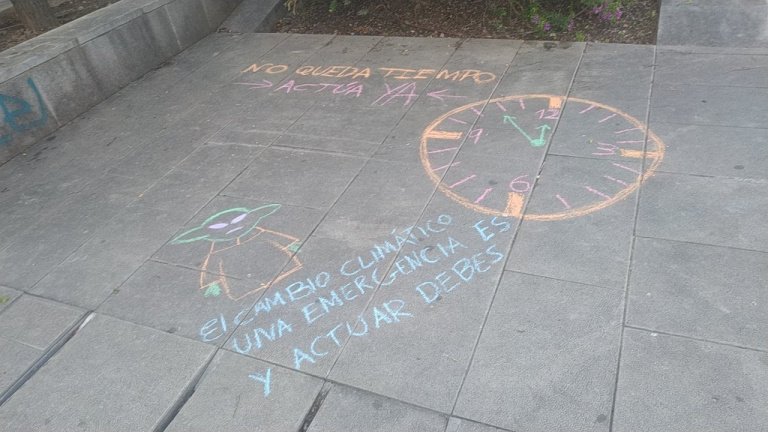 NO QUEDA TIEMPO
→ ACTÚA YA ←
12
9
3
6
El CAMBIO CLIMÁTICO
UNA EMERGENCIA ES
Y ACTUAR DEBES